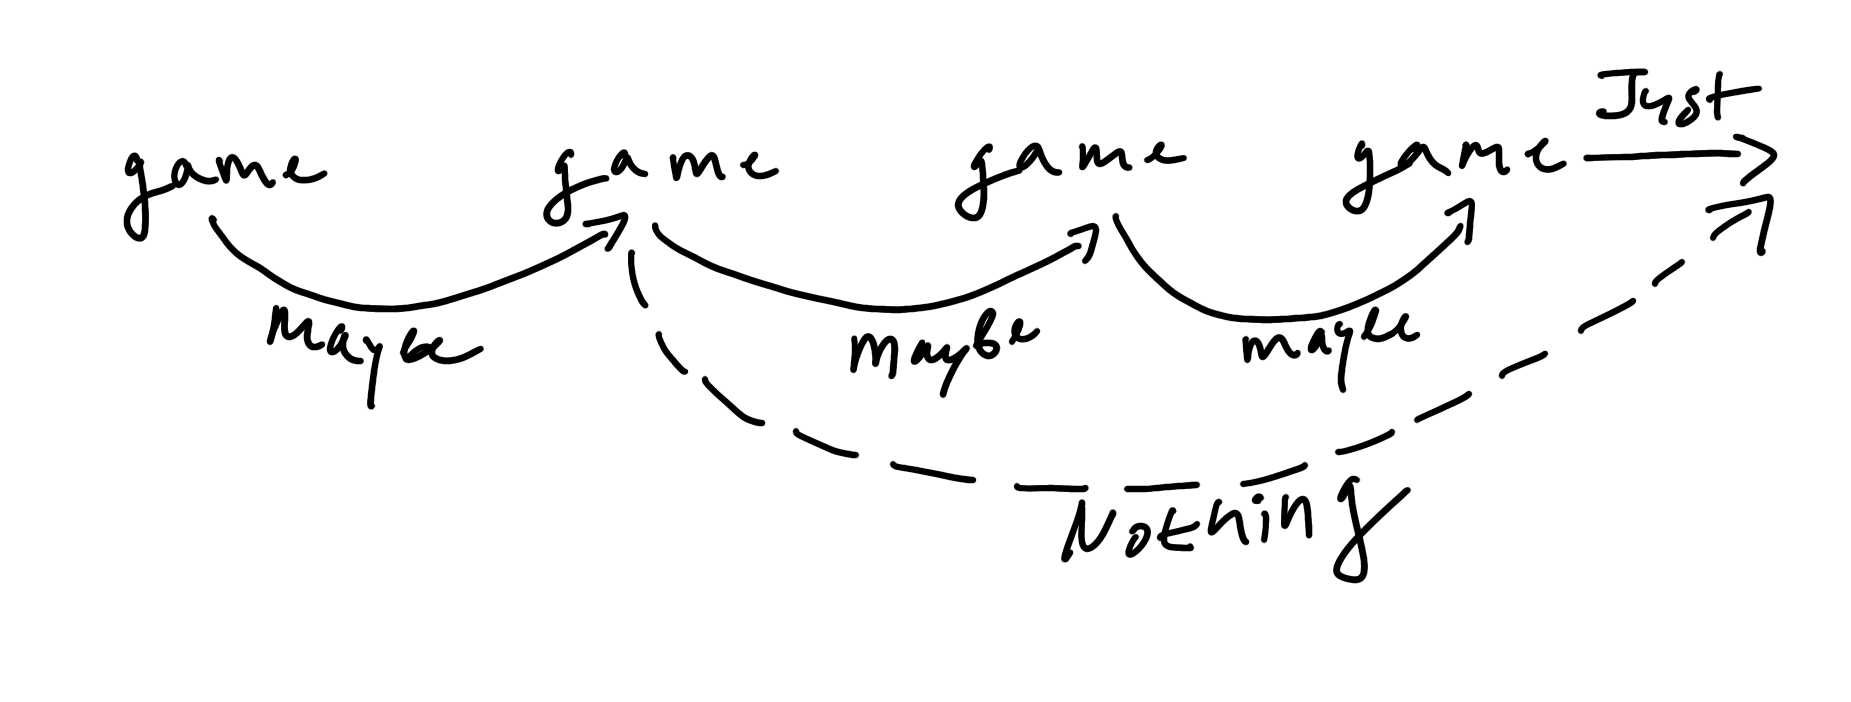 Just
game game game game
Maybe Maybe maybe
Nothing